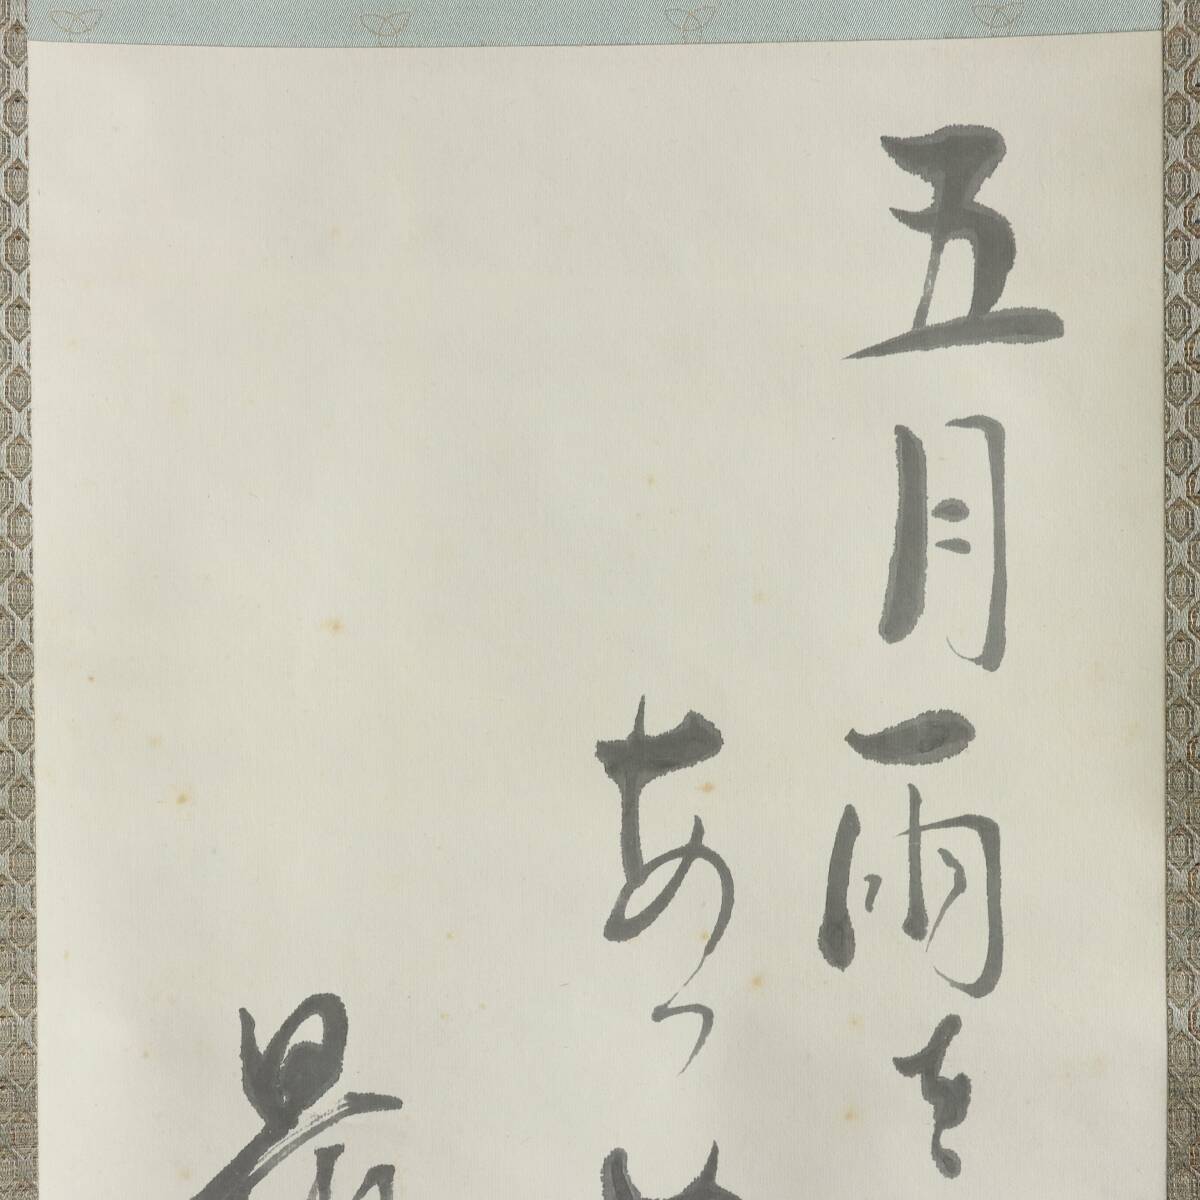 五月雨を
あつ
最